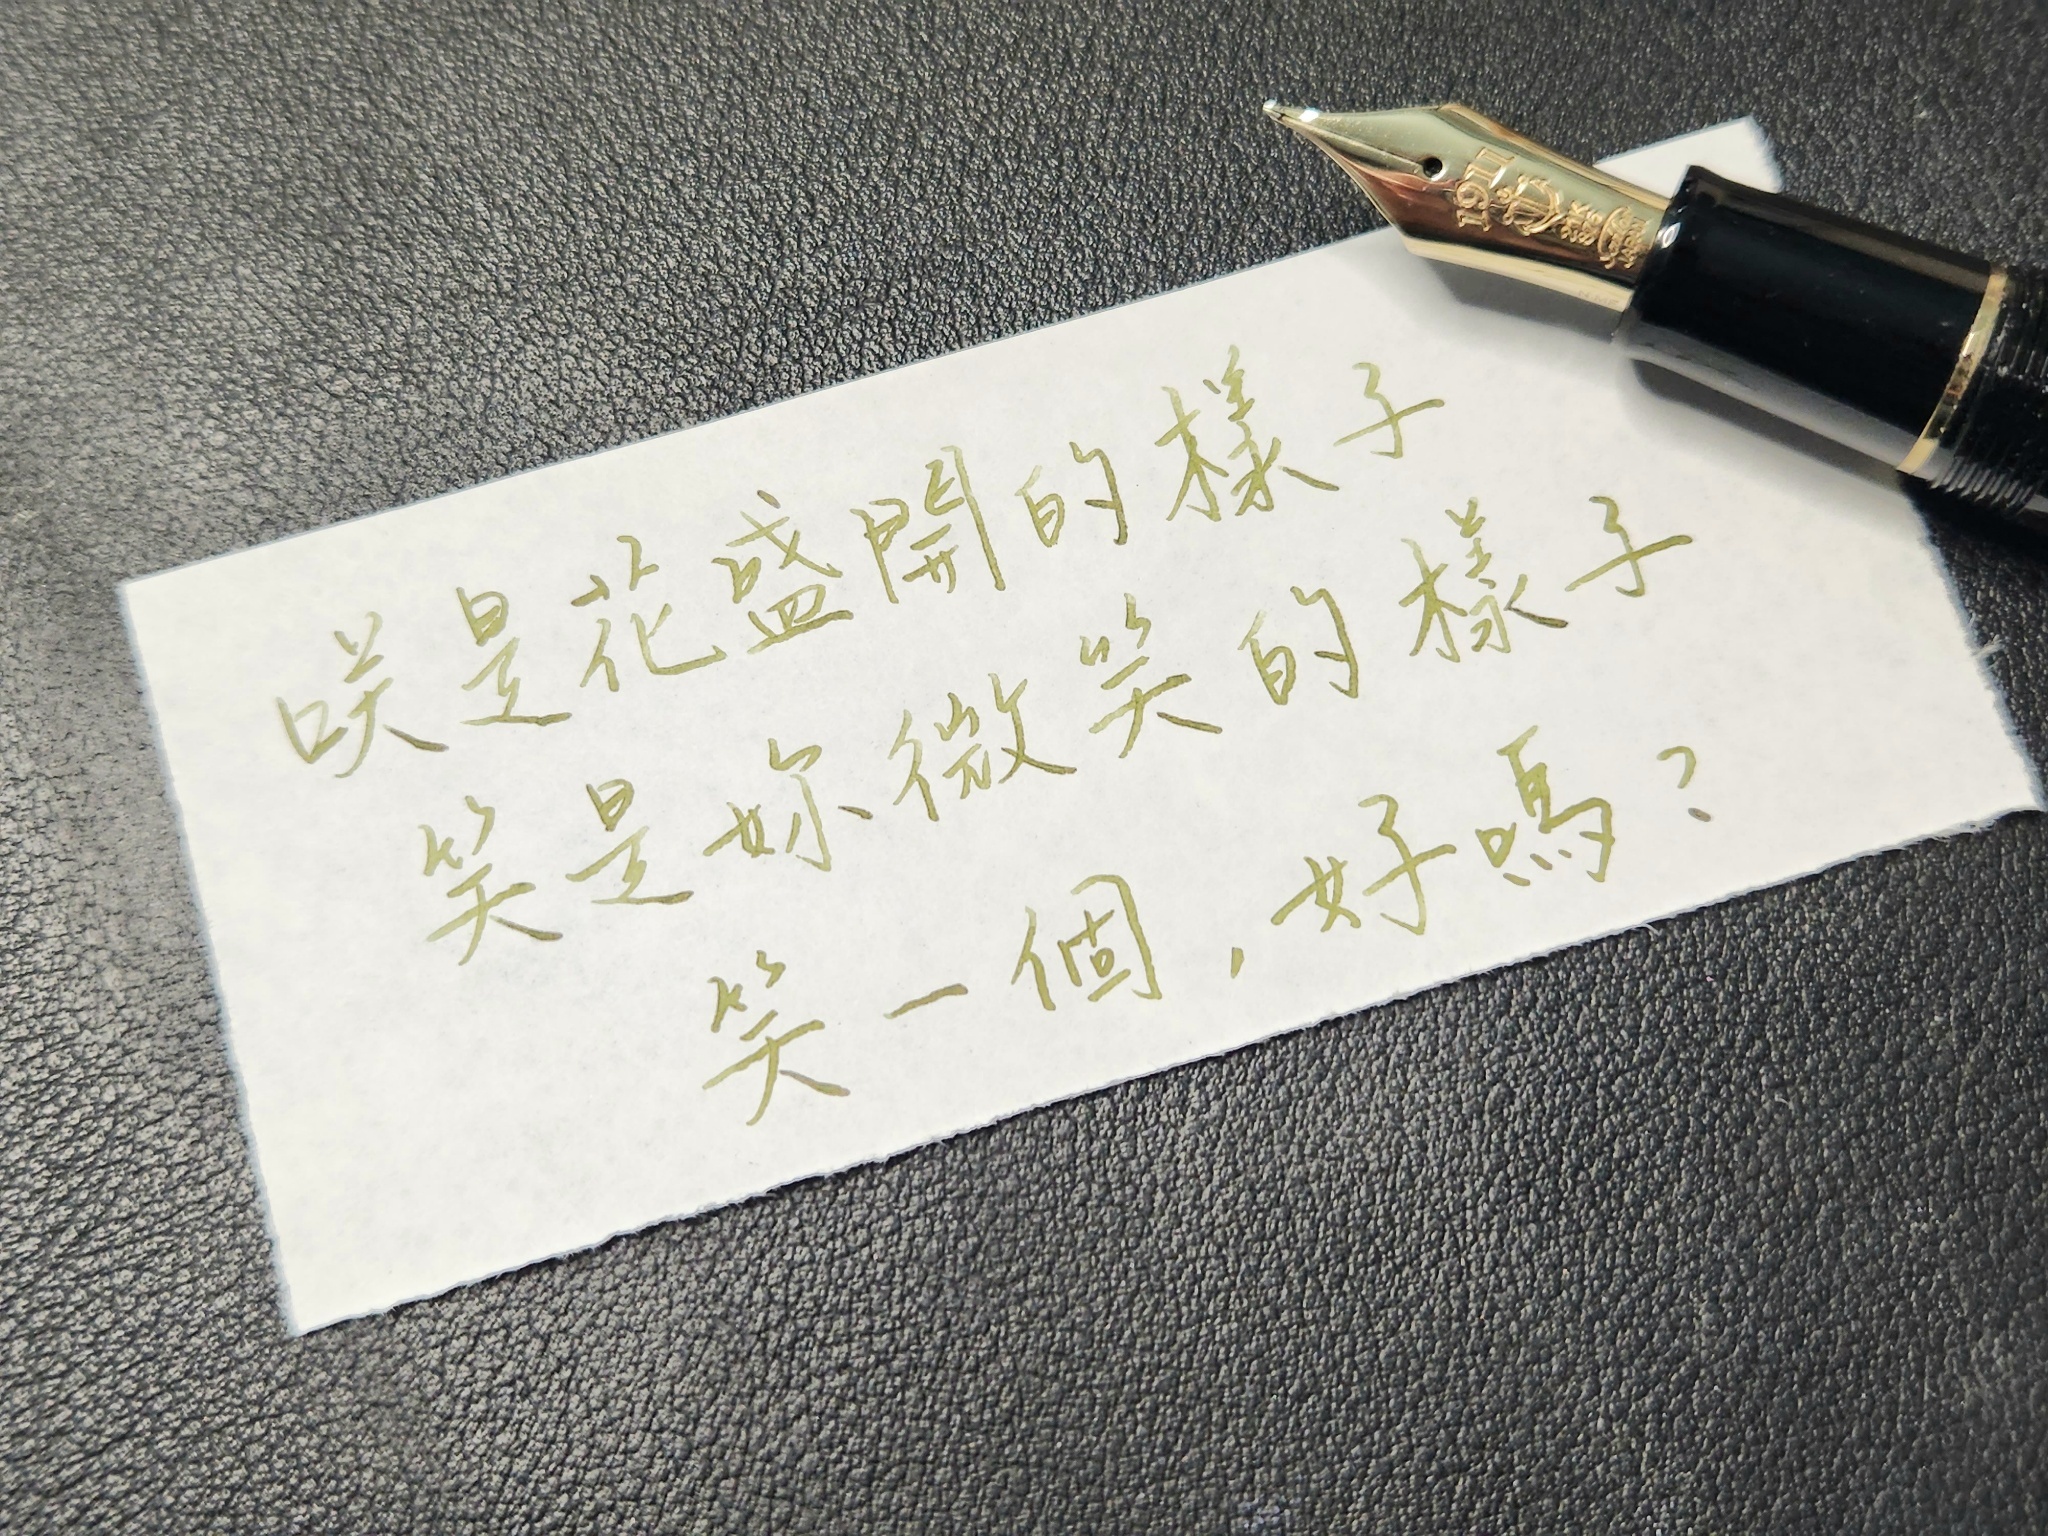 咲是花盛開的樣子
笑是妳微笑的樣子
笑一個,好嗎?
1911